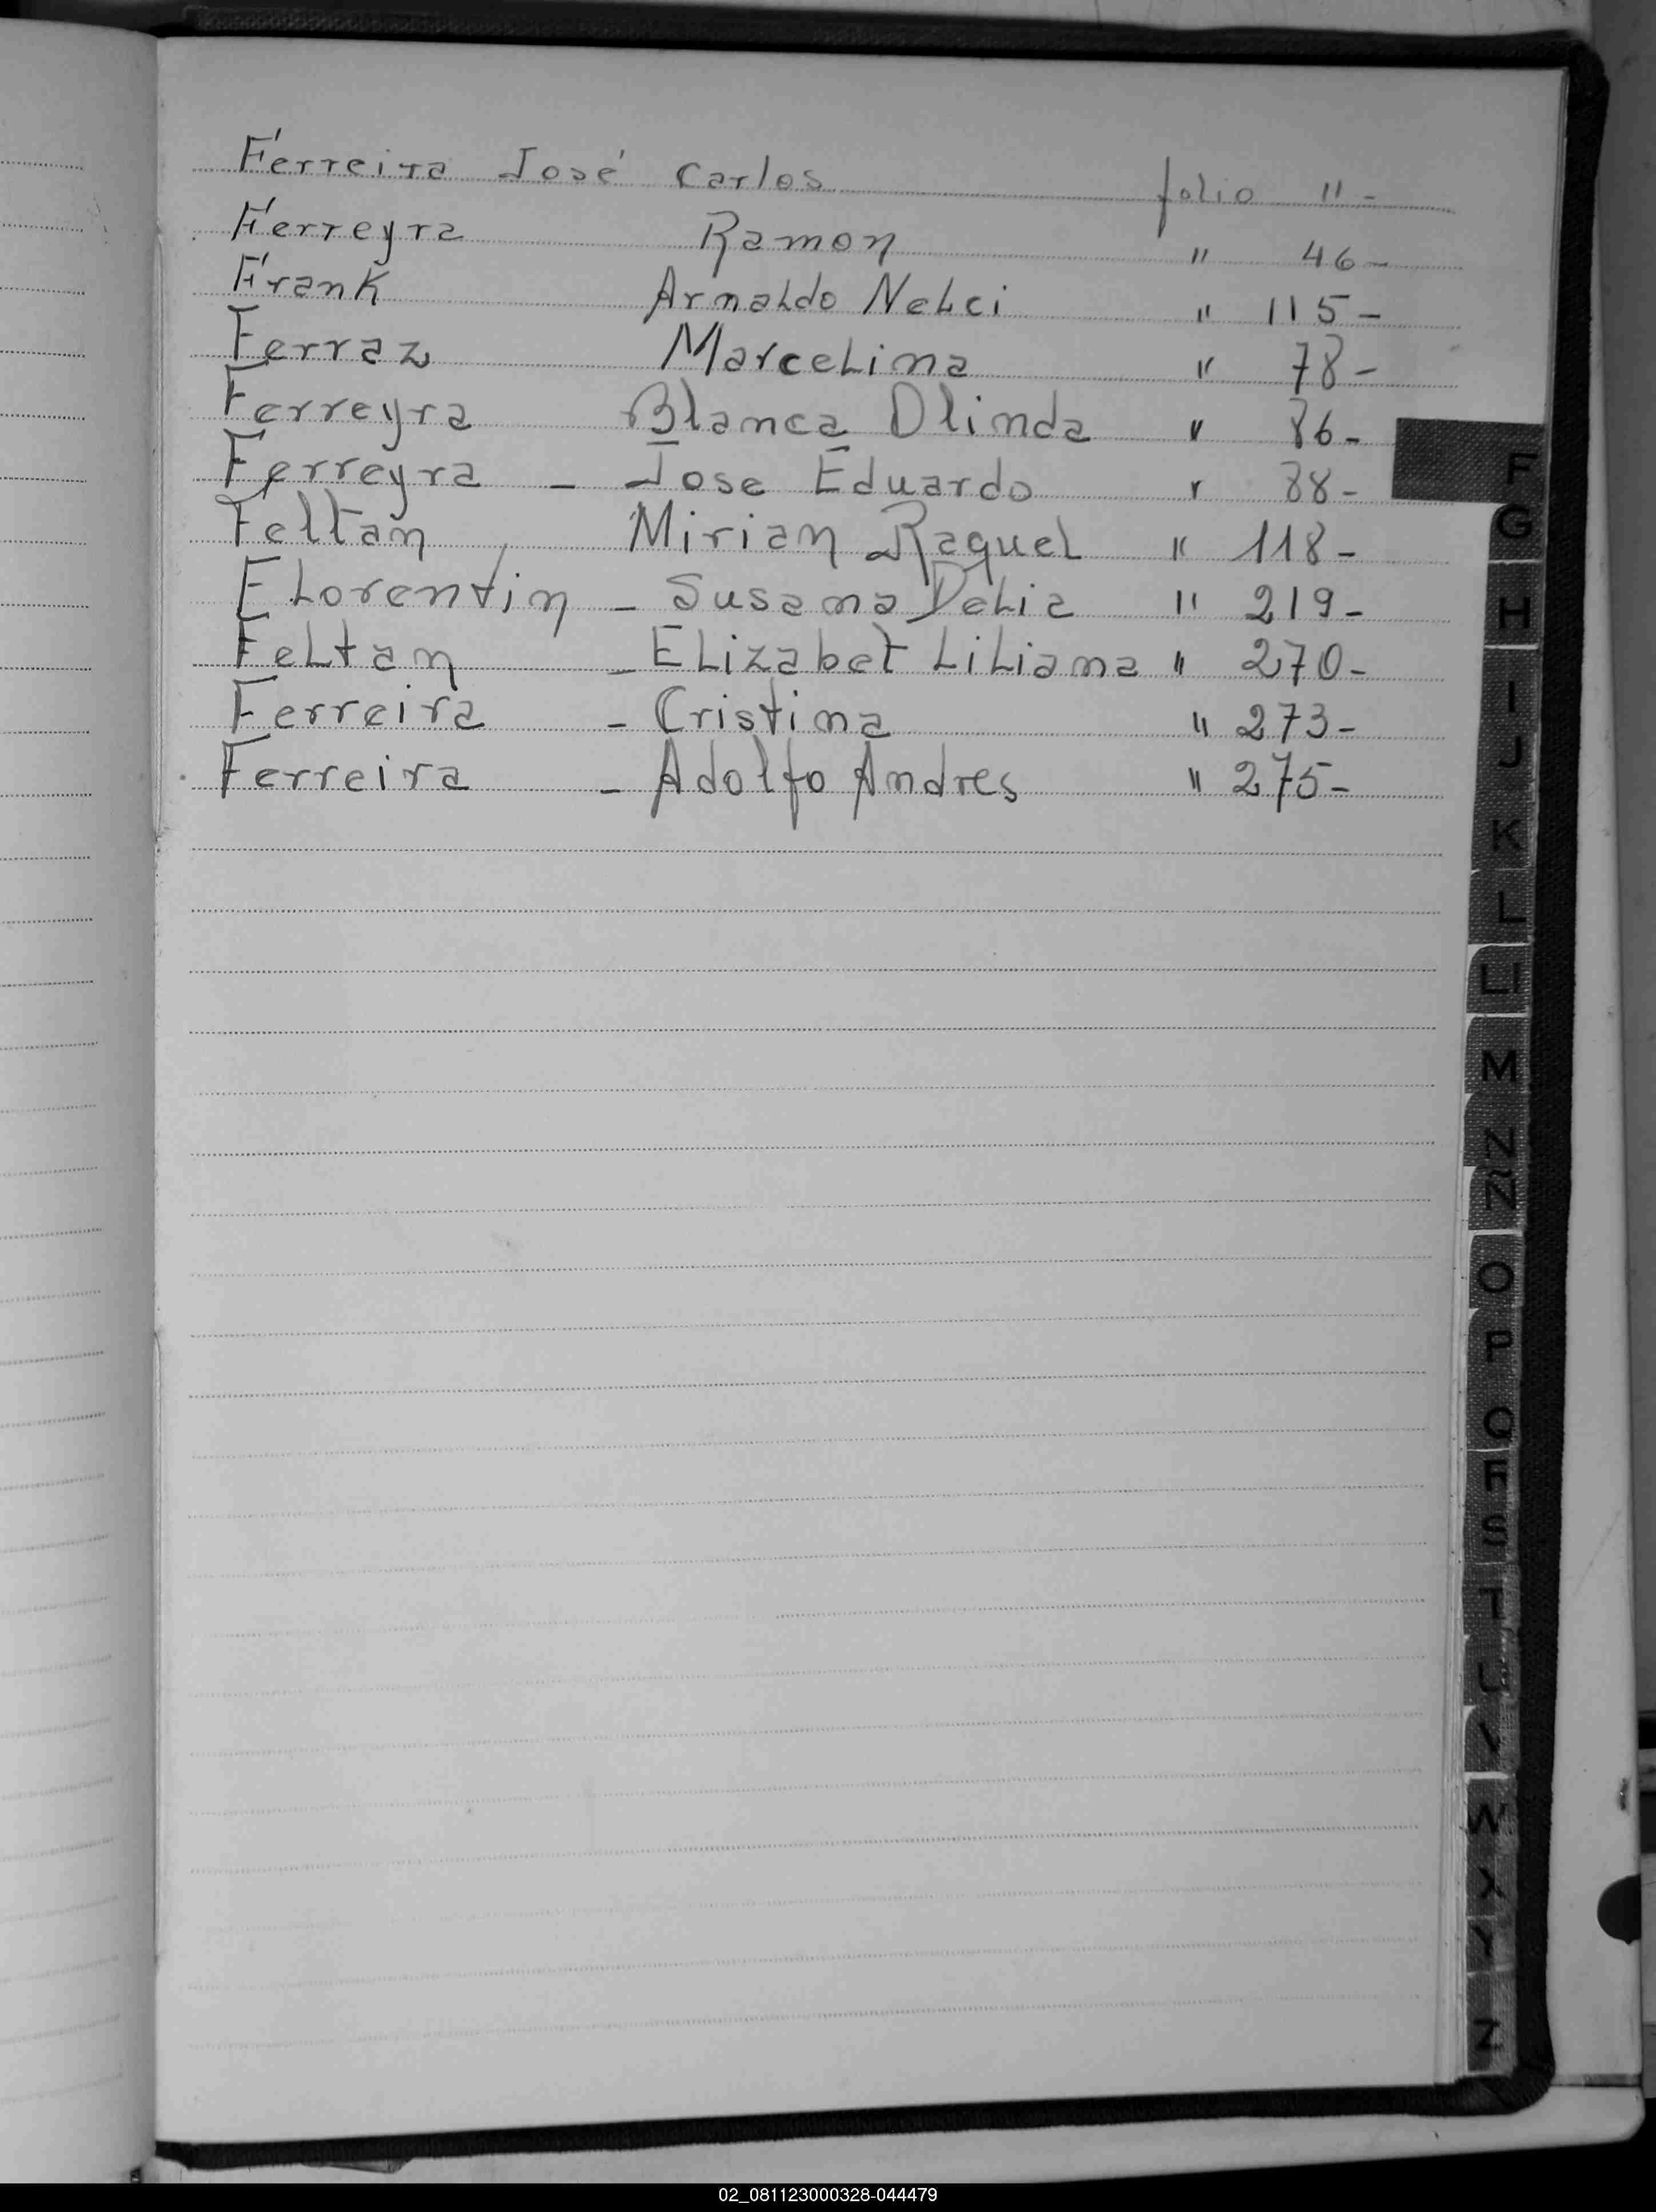 Ferreira José Carlos folio 11-
Ferreyra Ramon " 46-
Frank Arnaldo Nelci " 115-
Ferraz Marcelina " 78-
Ferreyra Blanca Olinda " 86-
Ferreyra - Jose Eduardo " 88-
Feltan Mirian Raquel " 118-
Florentin - Susana Delia " 219-
Feltan - Elizabet Liliana " 270-
Ferreira - Cristina " 273-
Ferreira - Adolfo Andres " 275-
F
G
H
I
J
K
L
Ll
M
N
Ñ
O
P
Q
R
S
T
U
V
W
X
Y
Z
02_081123000328-044479